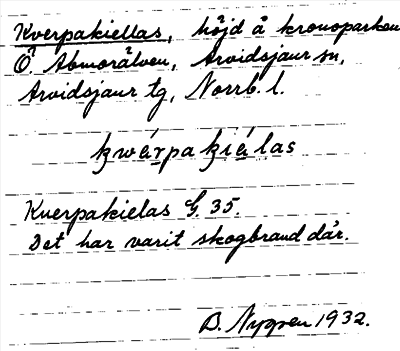 Kverpakiellas, höjd å kronoparken
Ö. Abmorälven, Arvidsjaur sn,
Arvidsjaur tg, Norrb. l.
kwẹ́rpakiẹ́las
Kverpakielas G. 35.
Det har varit skogbrand där.
B. Nygren 1932.